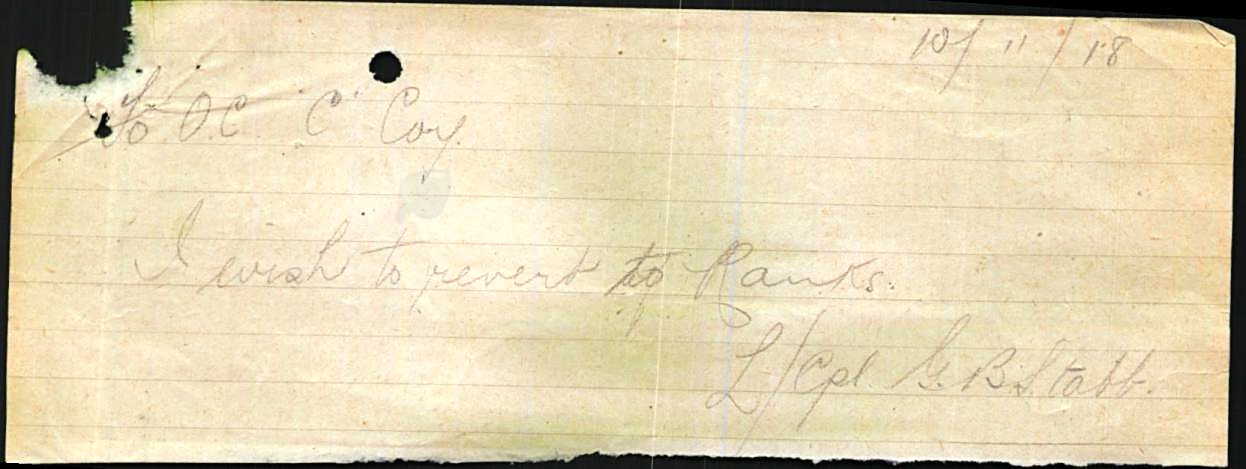 10/11/18
To O.C. "C" Coy.
I wish to revert to Ranks.
L/Cpl. G. B. Stabb.